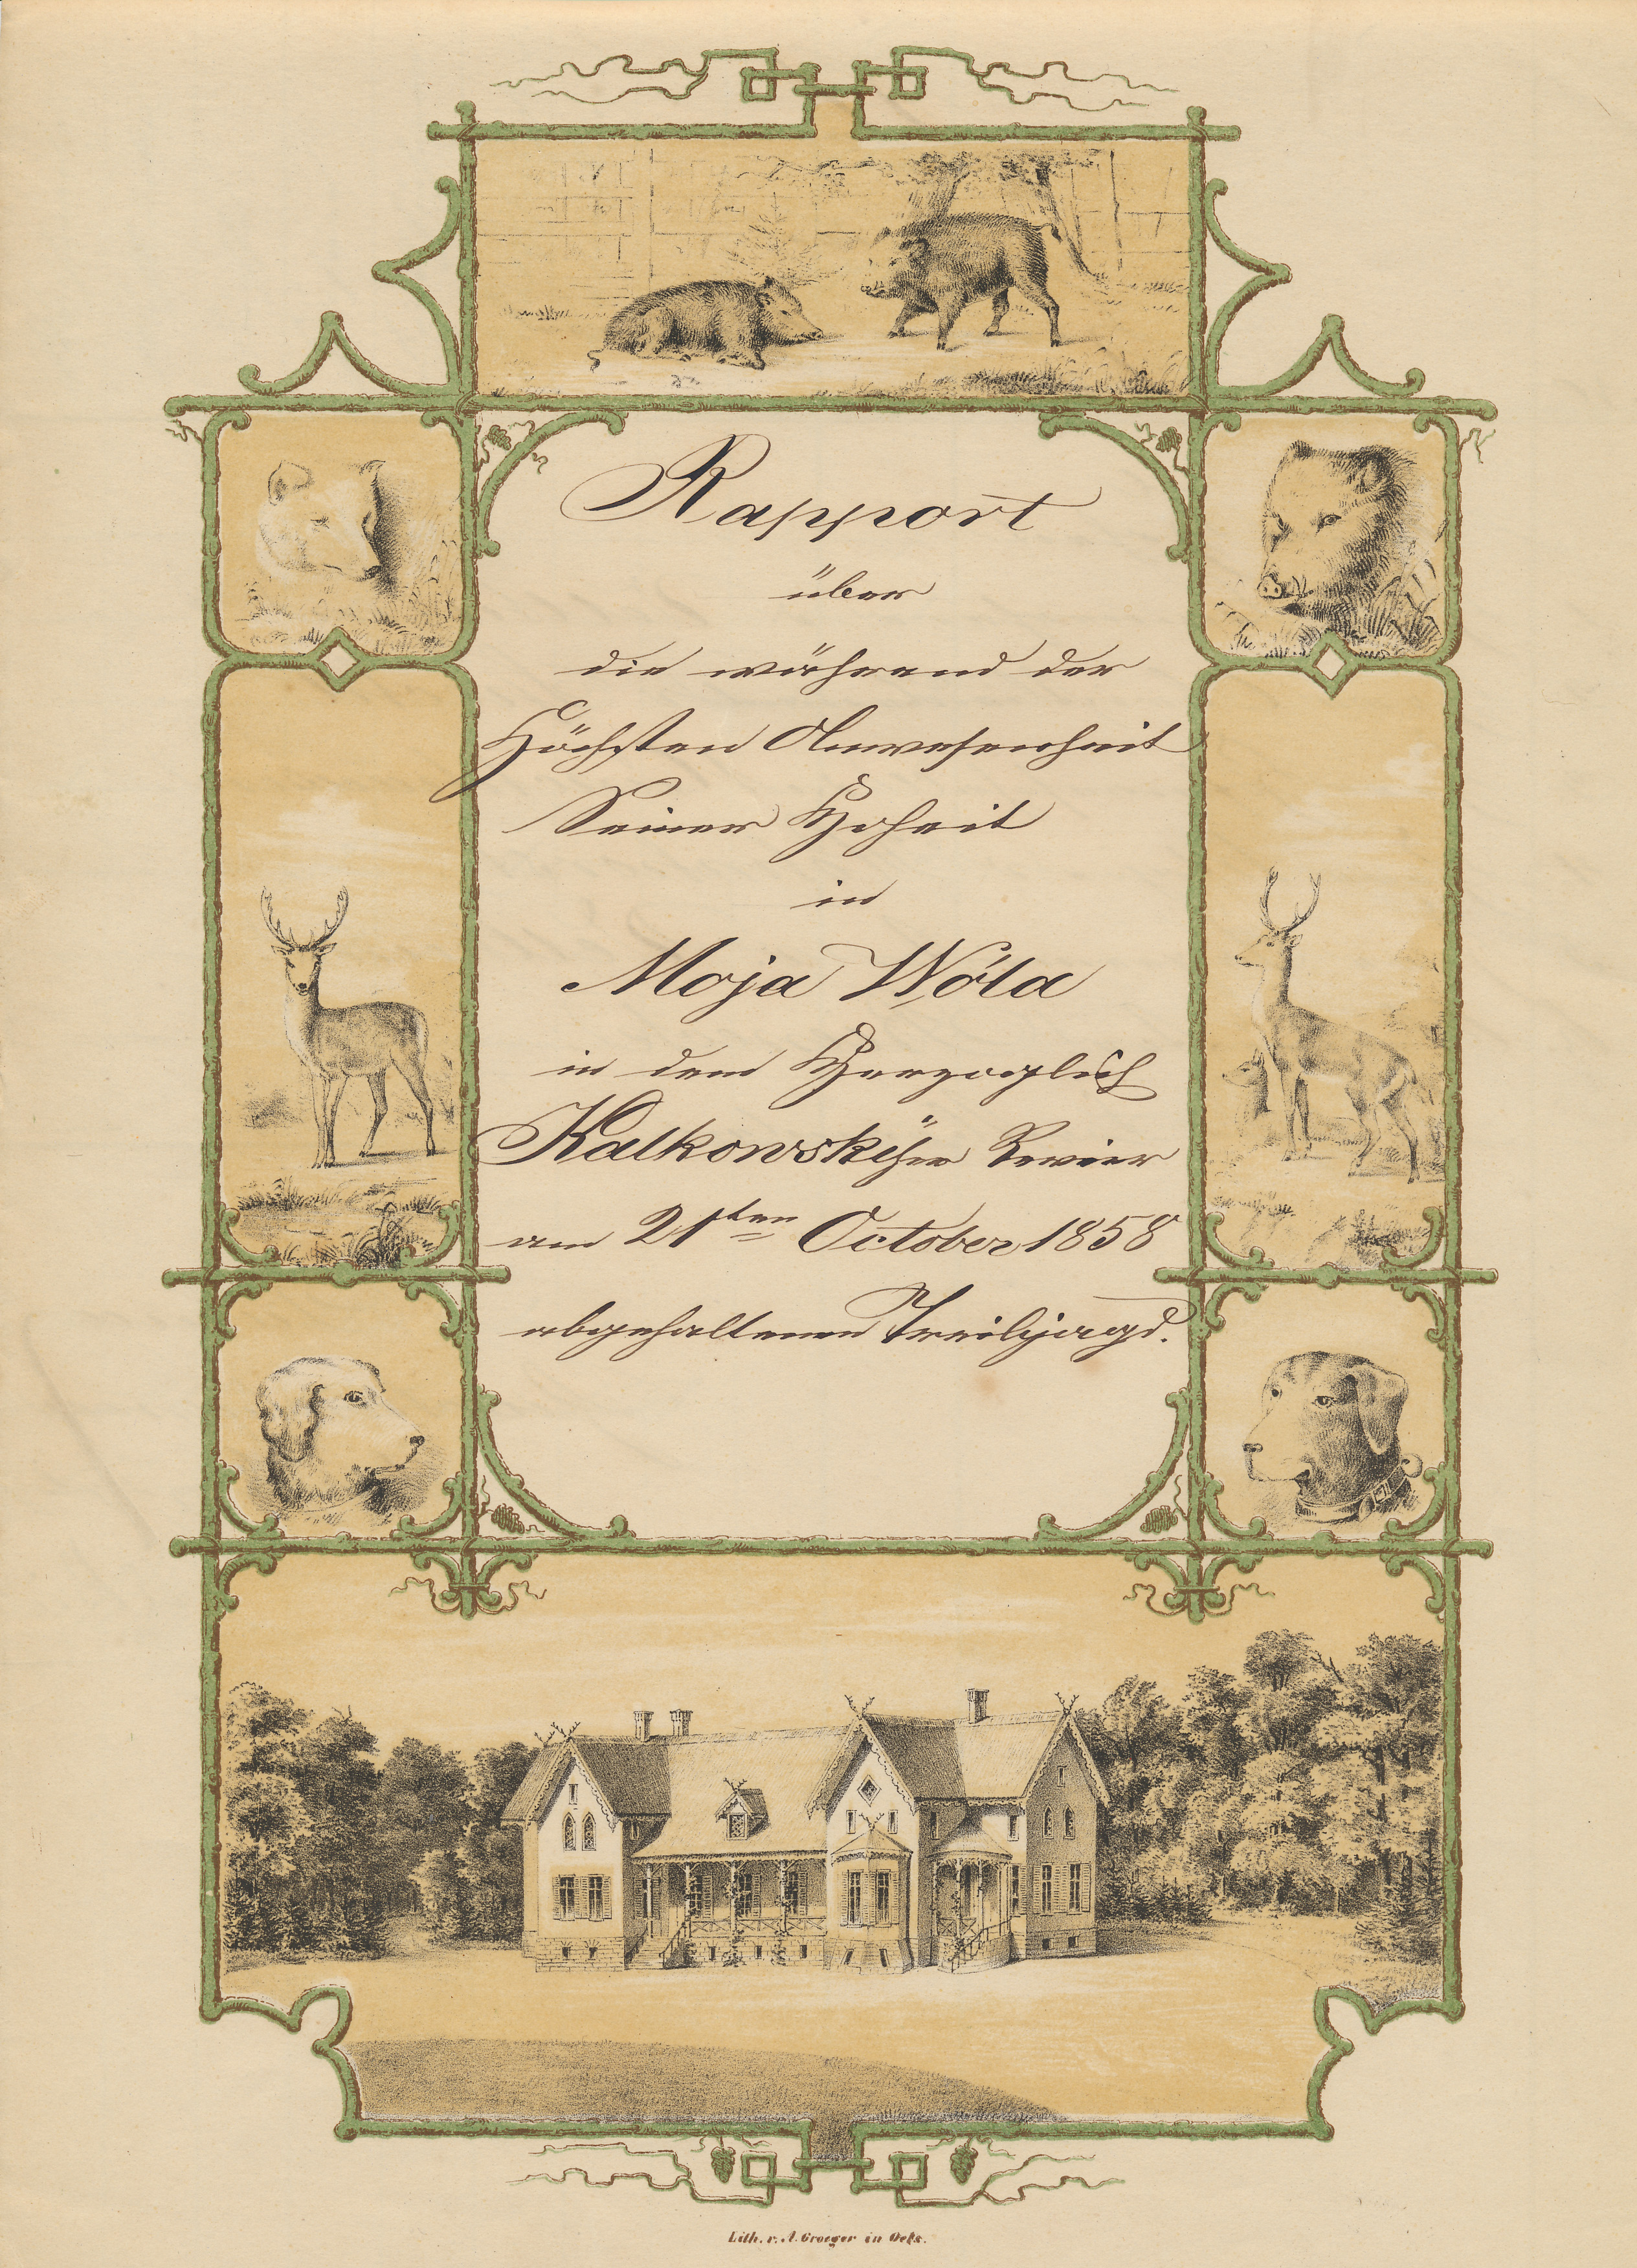 Rapport
über
die während der
Höchsten Anwesenheit
Seiner Hoheit
in
Moja Wóla
in dem Herzoglich
Kalkowskÿ'er Revier
am 21ten October 1858
abgehaltenen Treibjagd.
Lith. v. A. Groeger in Oels.